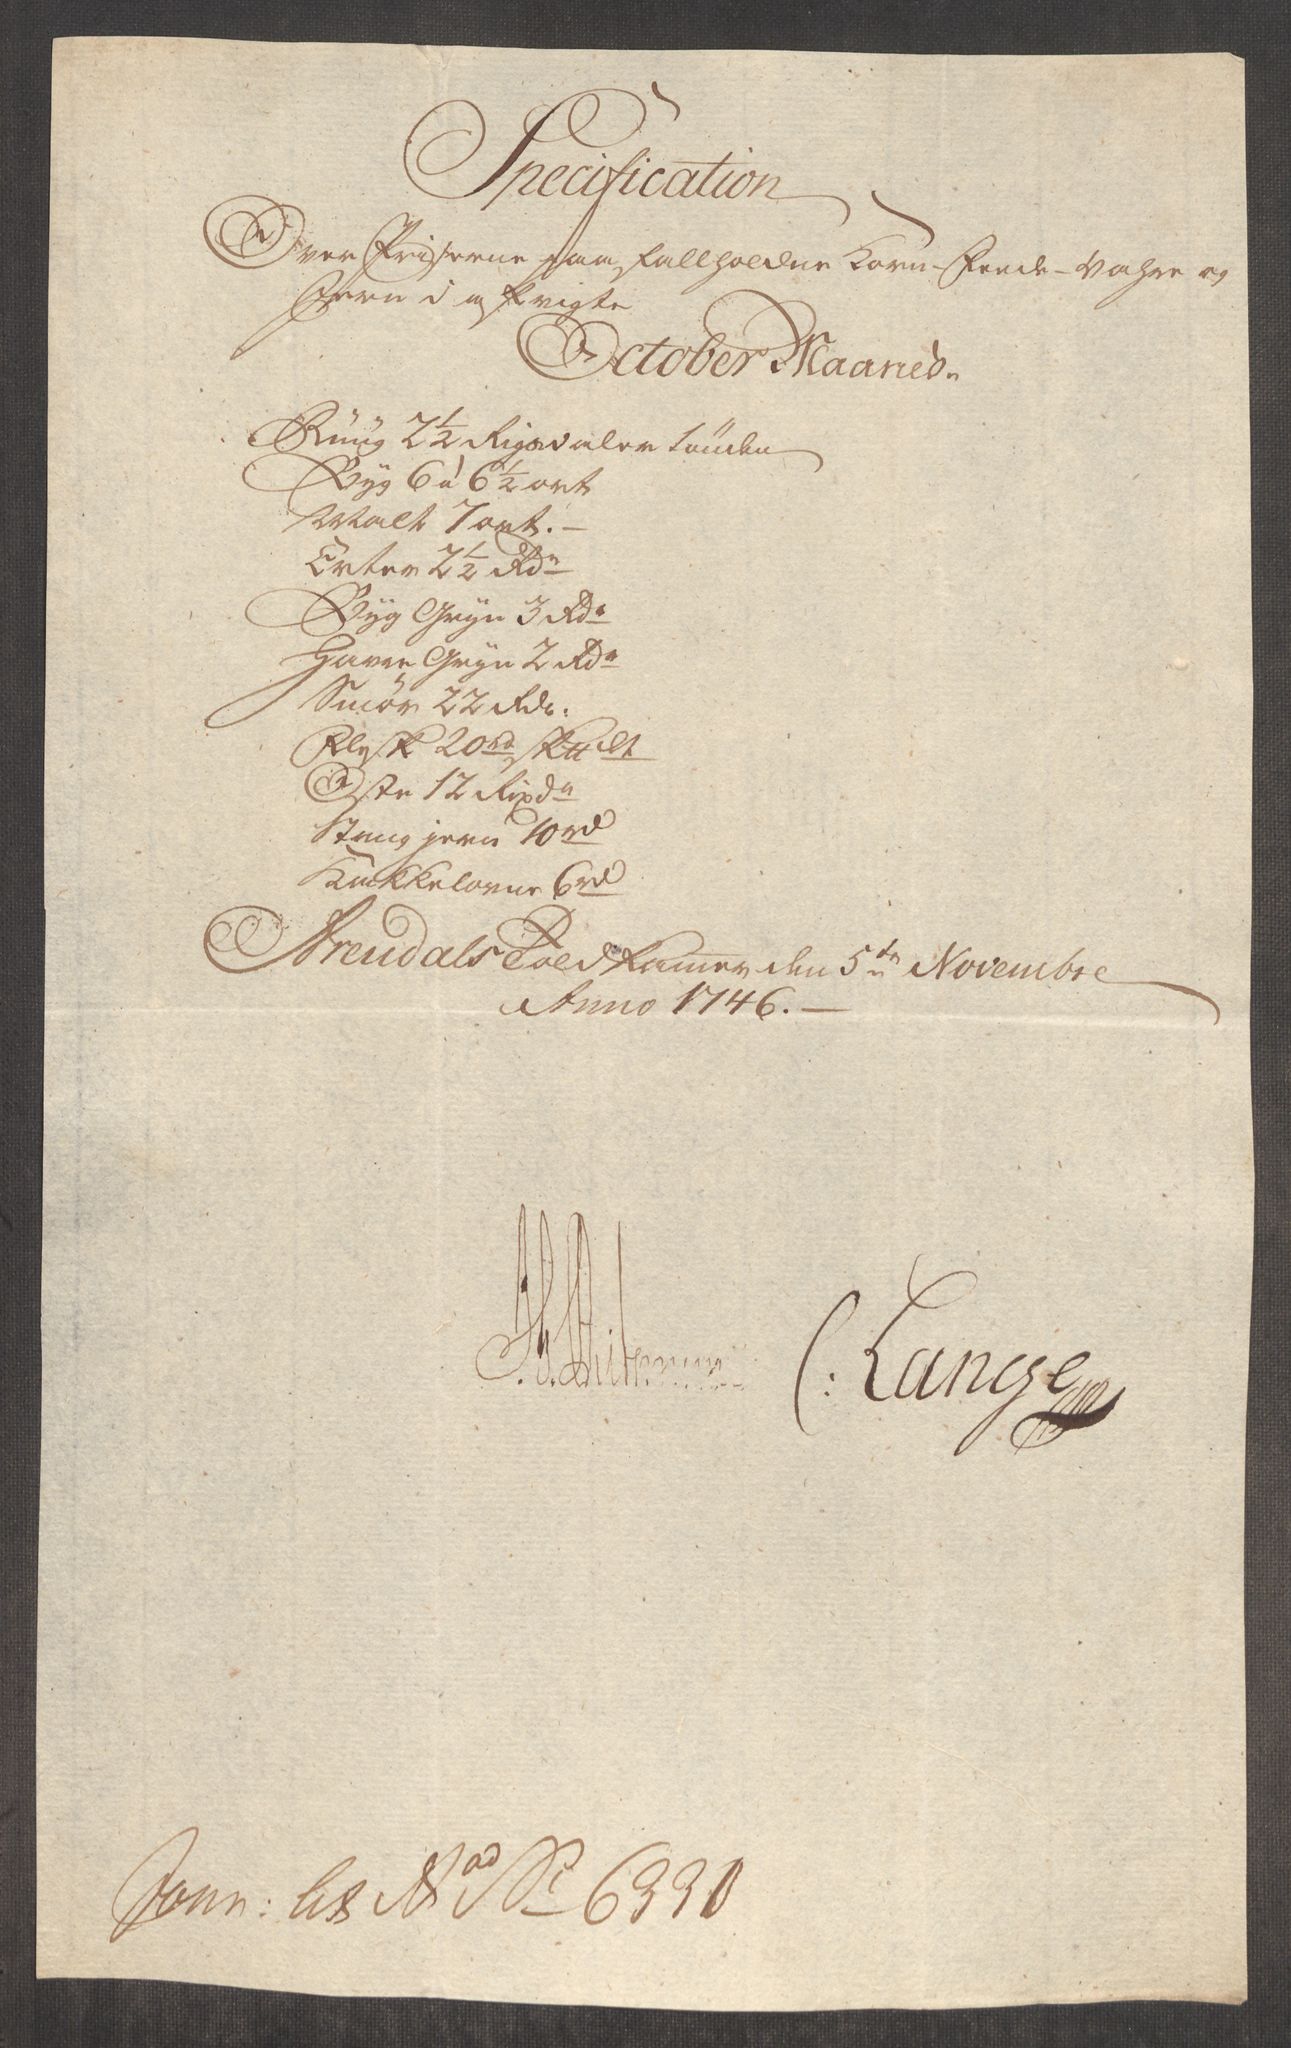 Specification
Over Priserne paa fallholdne Korn- Feede- Vahre og
Jern i afvigte
October Maaned.
Rüüg 2½ Rigsdaler tönden
Byg 6 à 6½ ort
Malt 7 ort.—
Erter 2½ Rdr
Byg Gryn 3 Rdr
Havre Gryn 2 Rdr
Smör 22 Rdr.
Flesk 20 rd
Oste 12 Rixdr
Stang jern 10 rd
Kakkelovne 6 rd
Arendals Told Kamer den 5te Novembre
Anno 1746.—
C: Lange
Journ: Lit 6330